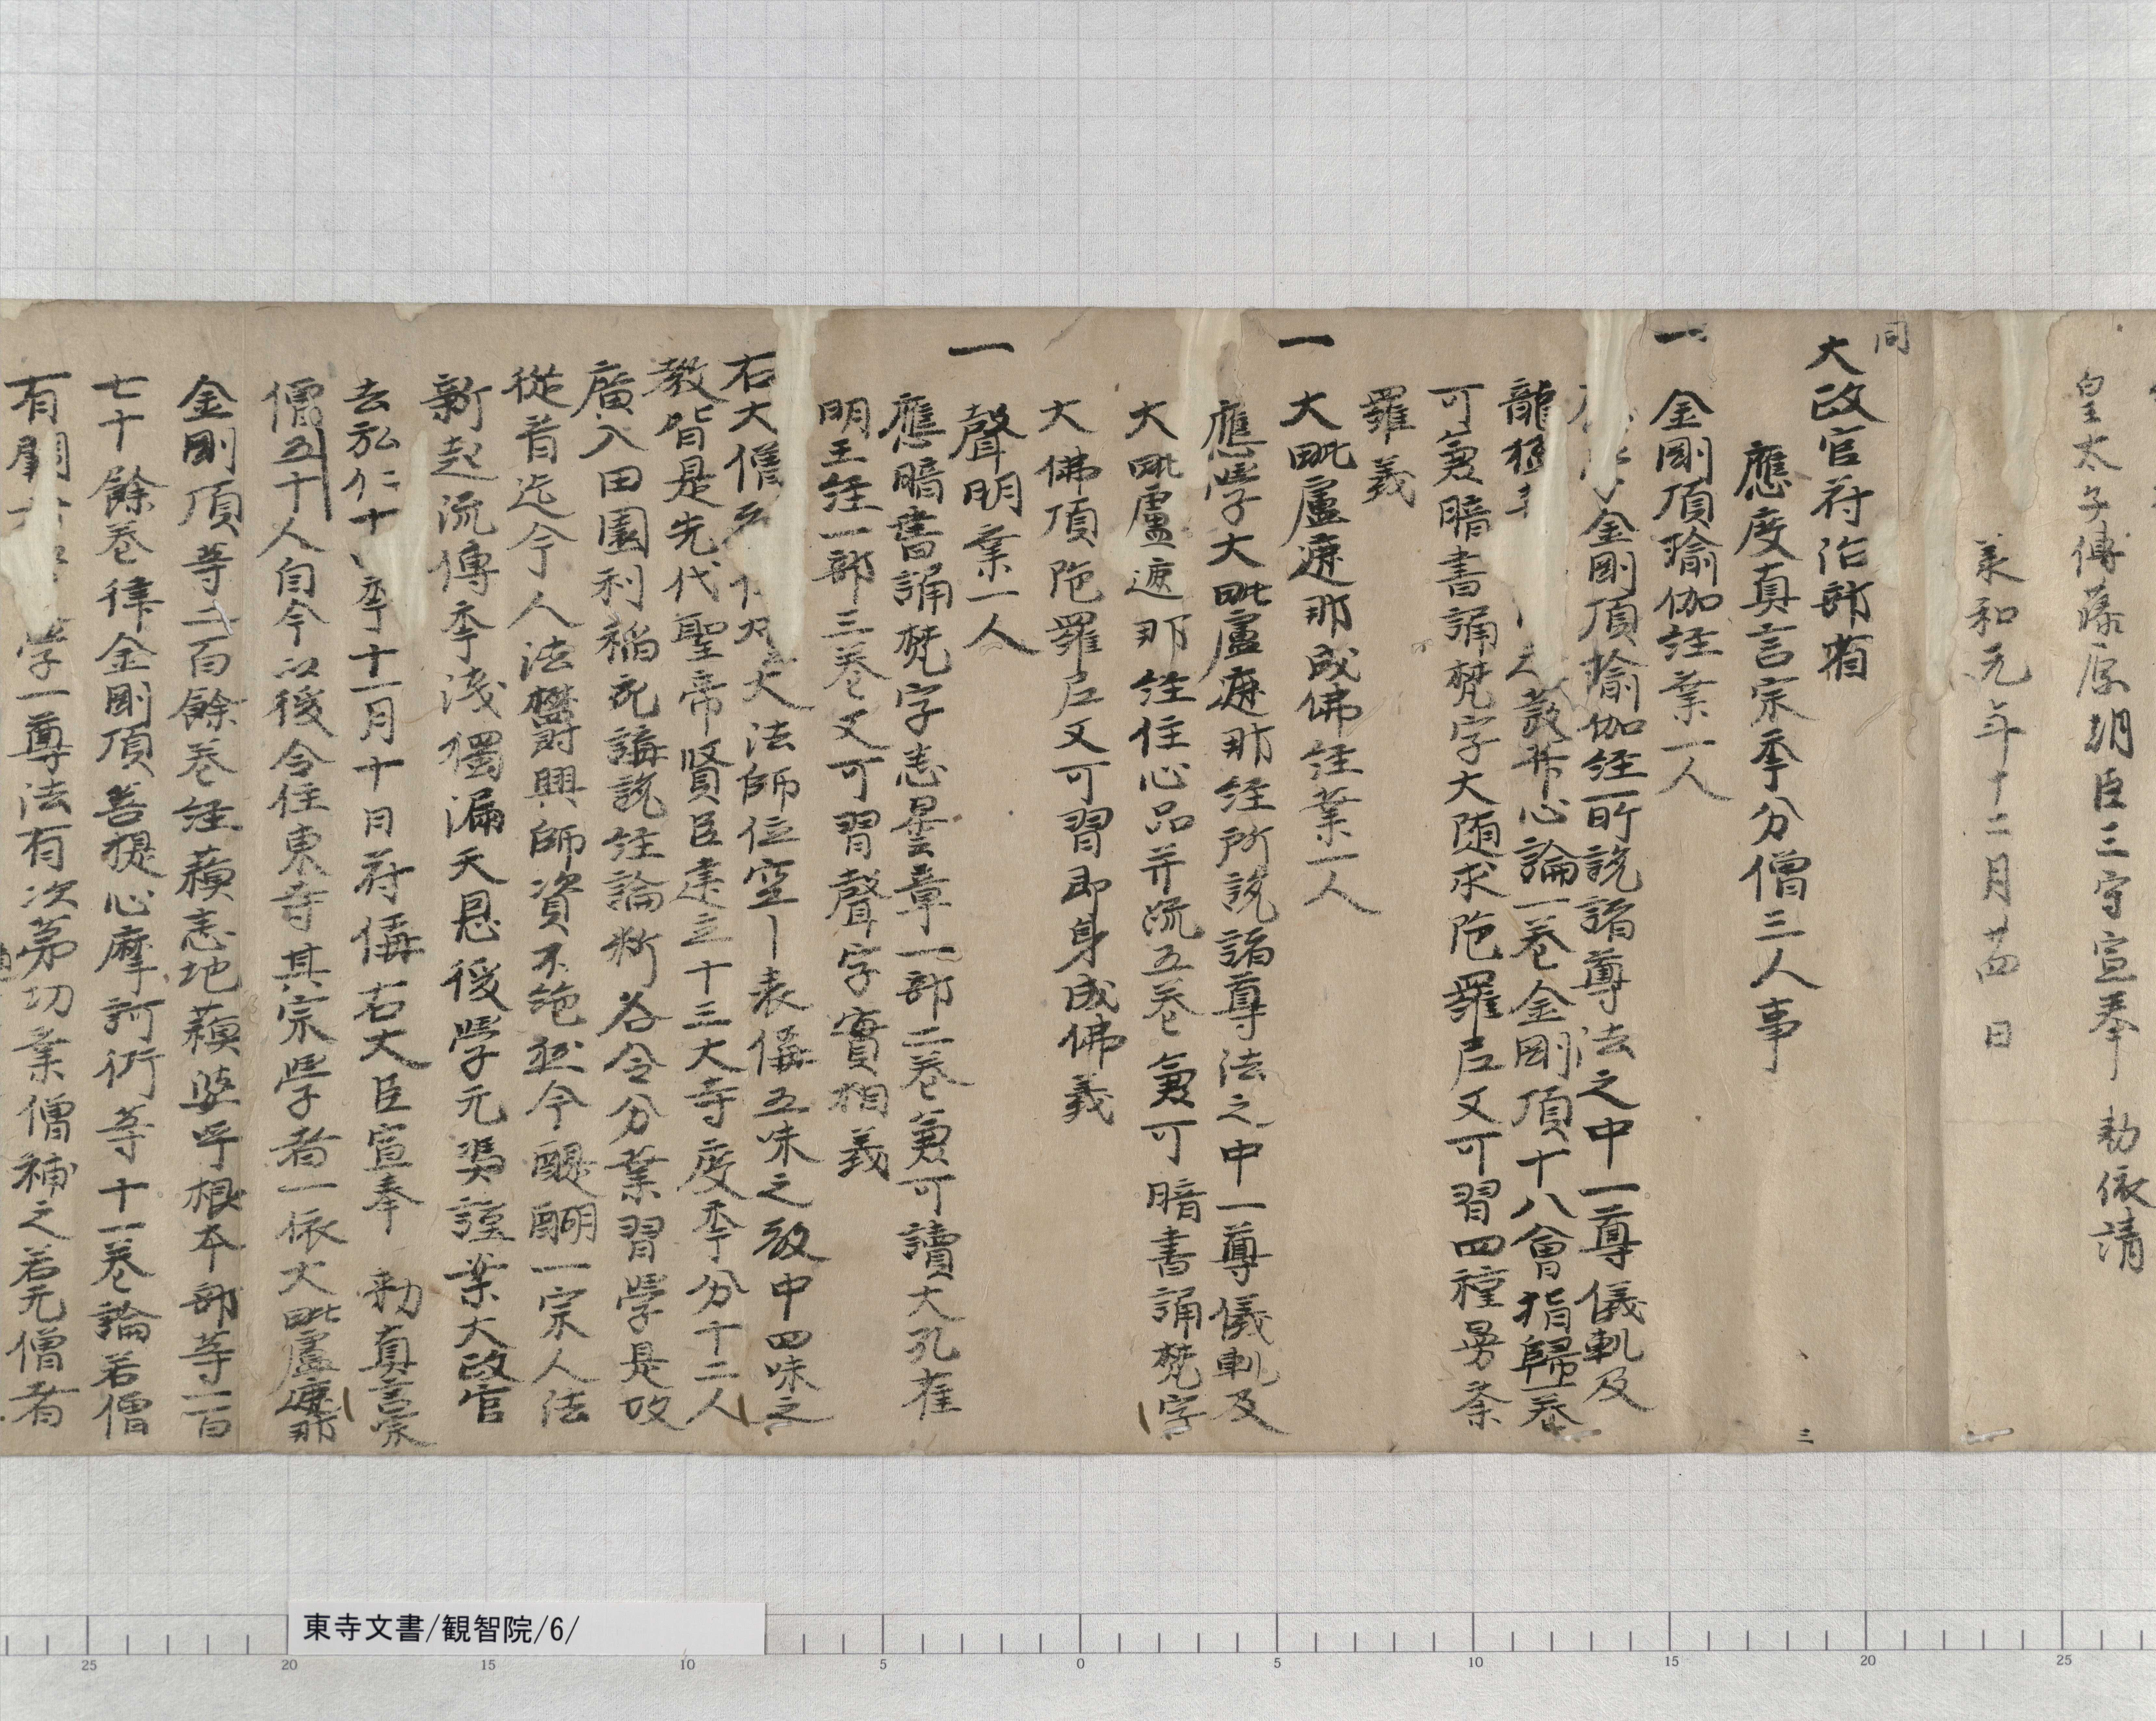 皇太子傅藤原朝臣三守宣奉 勅依請
承和元年十二月廿四日
同
太政官符治部省
應度真言宗季分僧三人事
一 金剛頂瑜伽経業一人
金剛頂瑜伽経所説諸尊法之中一尊儀軌及
龍猛 菩提心論一巻金剛頂十八會指歸一巻
可兼暗書誦梵字大随求陁羅尼又可習四種曼荼
羅義
一 大毗盧遮那成佛経業一人
應學大毗盧遮那経所説諸尊法之中一尊儀軌及
大毗盧遮那経住心品并疏五巻兼可暗書誦梵字
大佛頂陁羅尼又可習即身成佛義
一 聲明業一人
應暗書誦梵字悉曇章一部二巻兼可讀大孔雀
明王経一部三巻又可習聲字實相義
右大僧 大法師位空丨表偁五味之教中四味之
教皆是先代聖帝賢臣建立十三大寺度季分十二人
廣入田園利稲充講説経論新各令分業習學是故
從昔迄今人法欝興師資不絶然今醍醐一宗人法
新起流傳季淺獨漏天恩後學无憑謹案太政官
去弘仁十 季十月十日符偁右大臣宣奉 勅真言宗
僧五十人自今以後令住東寺其宗學者一依大毗盧遮那
金剛頂等二百餘巻経蘇悉地蘇婆呼根本部等一百
七十餘巻律金剛頂菩提心摩訶衍等十一巻論若僧
有闕 學一尊法有次第功業僧補之若无僧者
三
東寺文書/観智院/6/
25 20 15 10 5 0 5 10 15 20 25